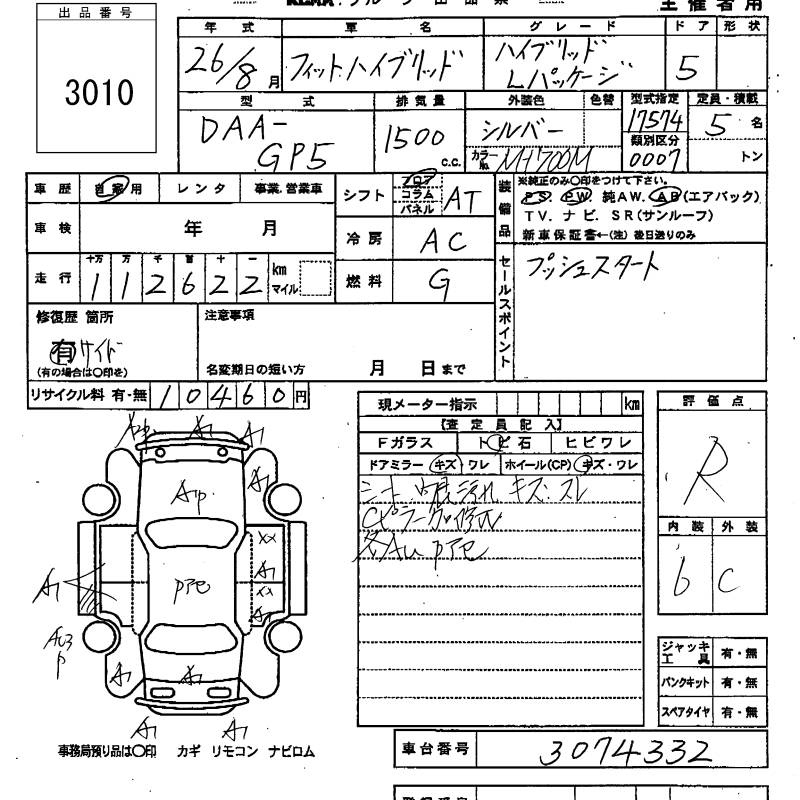 出品番号
3010
主催者用
年式 車名 グレード ドア 形状
26/8月 フィットハイブリッド ハイブリッド Lパッケージ 5
型式 排気量 外装色 色替 型式指定 定員・積載
DAA-GP5 1500 c.c. シルバー 17574 5名
カラーNo. NH700M 類別区分 0007 トン
車歴 自家用 レンタ 事業.営業車
車検 年 月
走行 十万 万 千 百 十 一 km マイル
1 1 2 6 2 2
シフト フロア コラム パネル AT
冷房 AC
燃料 G
装備品 ※純正のみ〇印をつけて下さい。
PS. PW. 純AW. AB(エアバック)
TV. ナビ. SR(サンルーフ)
新車保証書←(注) 後日送りのみ
セールスポイント プッシュスタート
修復歴 箇所
有 サイド
(有の場合は〇印を)
注意事項
名変期日の短い方 月 日まで
リサイクル料 有・無 10460円
現メーター指示 km
【査定員記入】
Fガラス トビ石 ヒビワレ
ドアミラー キズ・ワレ ホイール(CP) キズ・ワレ
キズ・スレ
各AU
評価点
R
内装 外装
6 C
A1 A1
A1
AP
XX
A1
A1 XX
A1
AU3
P
A1 A1
A1 A1
ジャッキ 工具 有・無
パンクキット 有・無
スペアタイヤ 有・無
事務局預り品は〇印 カギ リモコン ナビロム
車台番号 3074332